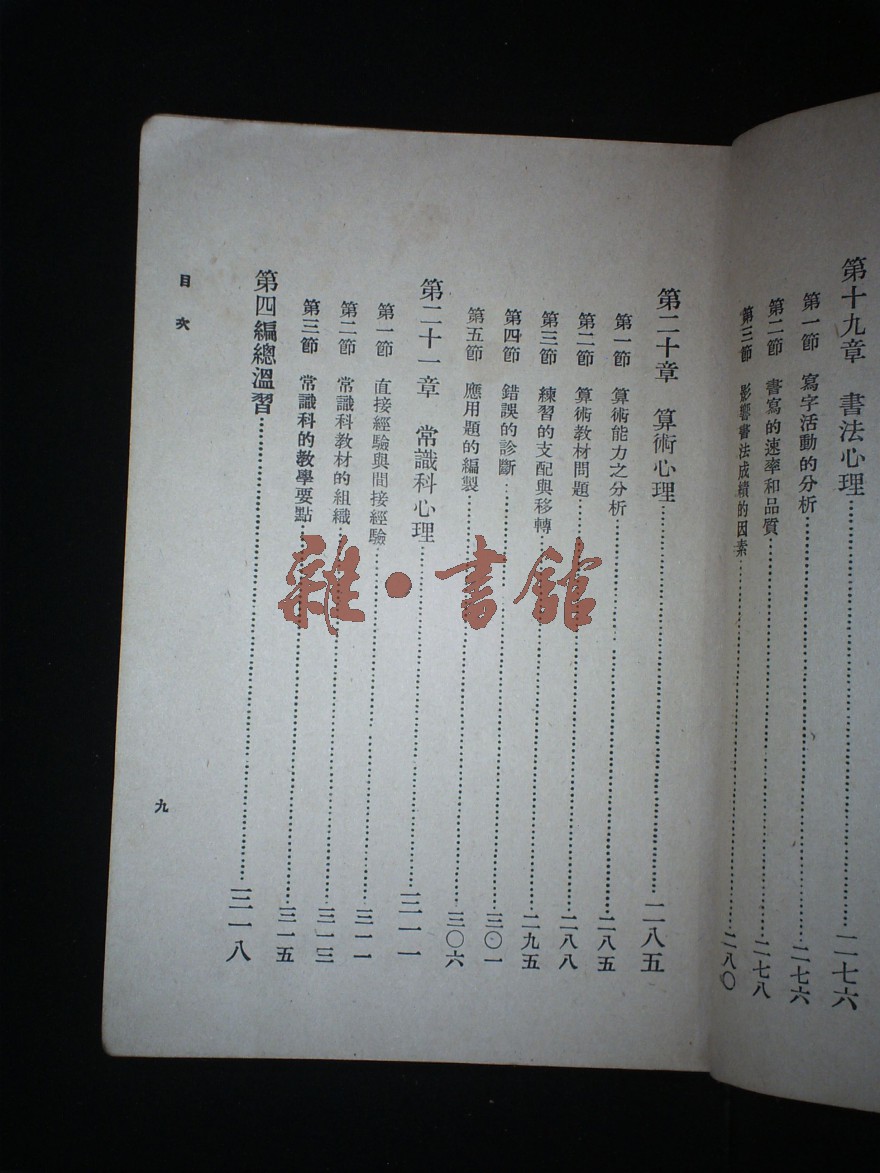 第十九章　書法心理……二七六
第一節　寫字活動的分析……二七六
第二節　書寫的速率和品質……二七八
第三節　影響書法成績的因素……二八〇
第二十章　算術心理……二八五
第一節　算術能力之分析……二八五
第二節　算術教材問題……二八八
第三節　練習的支配與移轉……二九五
第四節　錯誤的診斷……三〇一
第五節　應用題的編製……三〇六
第二十一章　常識科心理……三一一
第一節　直接經驗與間接經驗……三一一
第二節　常識科教材的組織……三一三
第三節　常識科的教學要點……三一五
第四編總溫習……三一八
目次
九
雜·書館